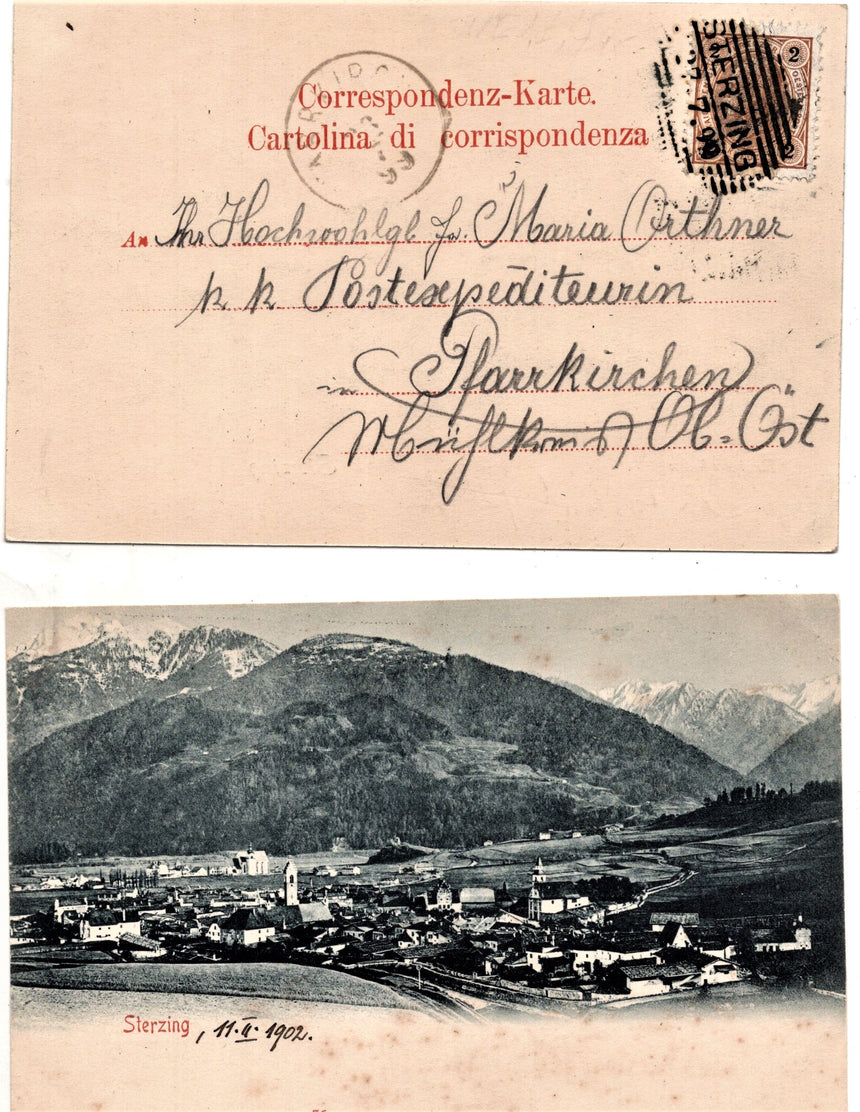 Correspondenz-Karte.
Cartolina di corrispondenza
2 2
STERZING
7.99
2
An Ihr Hochwohlgb Fr. Maria Orthner
k k Postexpediteurin
in Pfarrkirchen
Mühlkreis Ob=Öst
Sterzing, 11.II.1902.